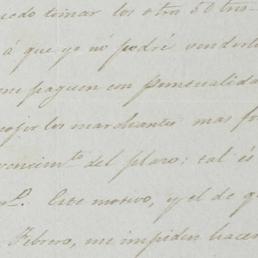 uedo tomar los otro 50 tns.
á que yo no podré venderlo
me paguen con puntualida
cojer los marchantes mas f
vencimto. del plazo: tal és
Este motivo, y el de q
Febrero, me impiden hacer